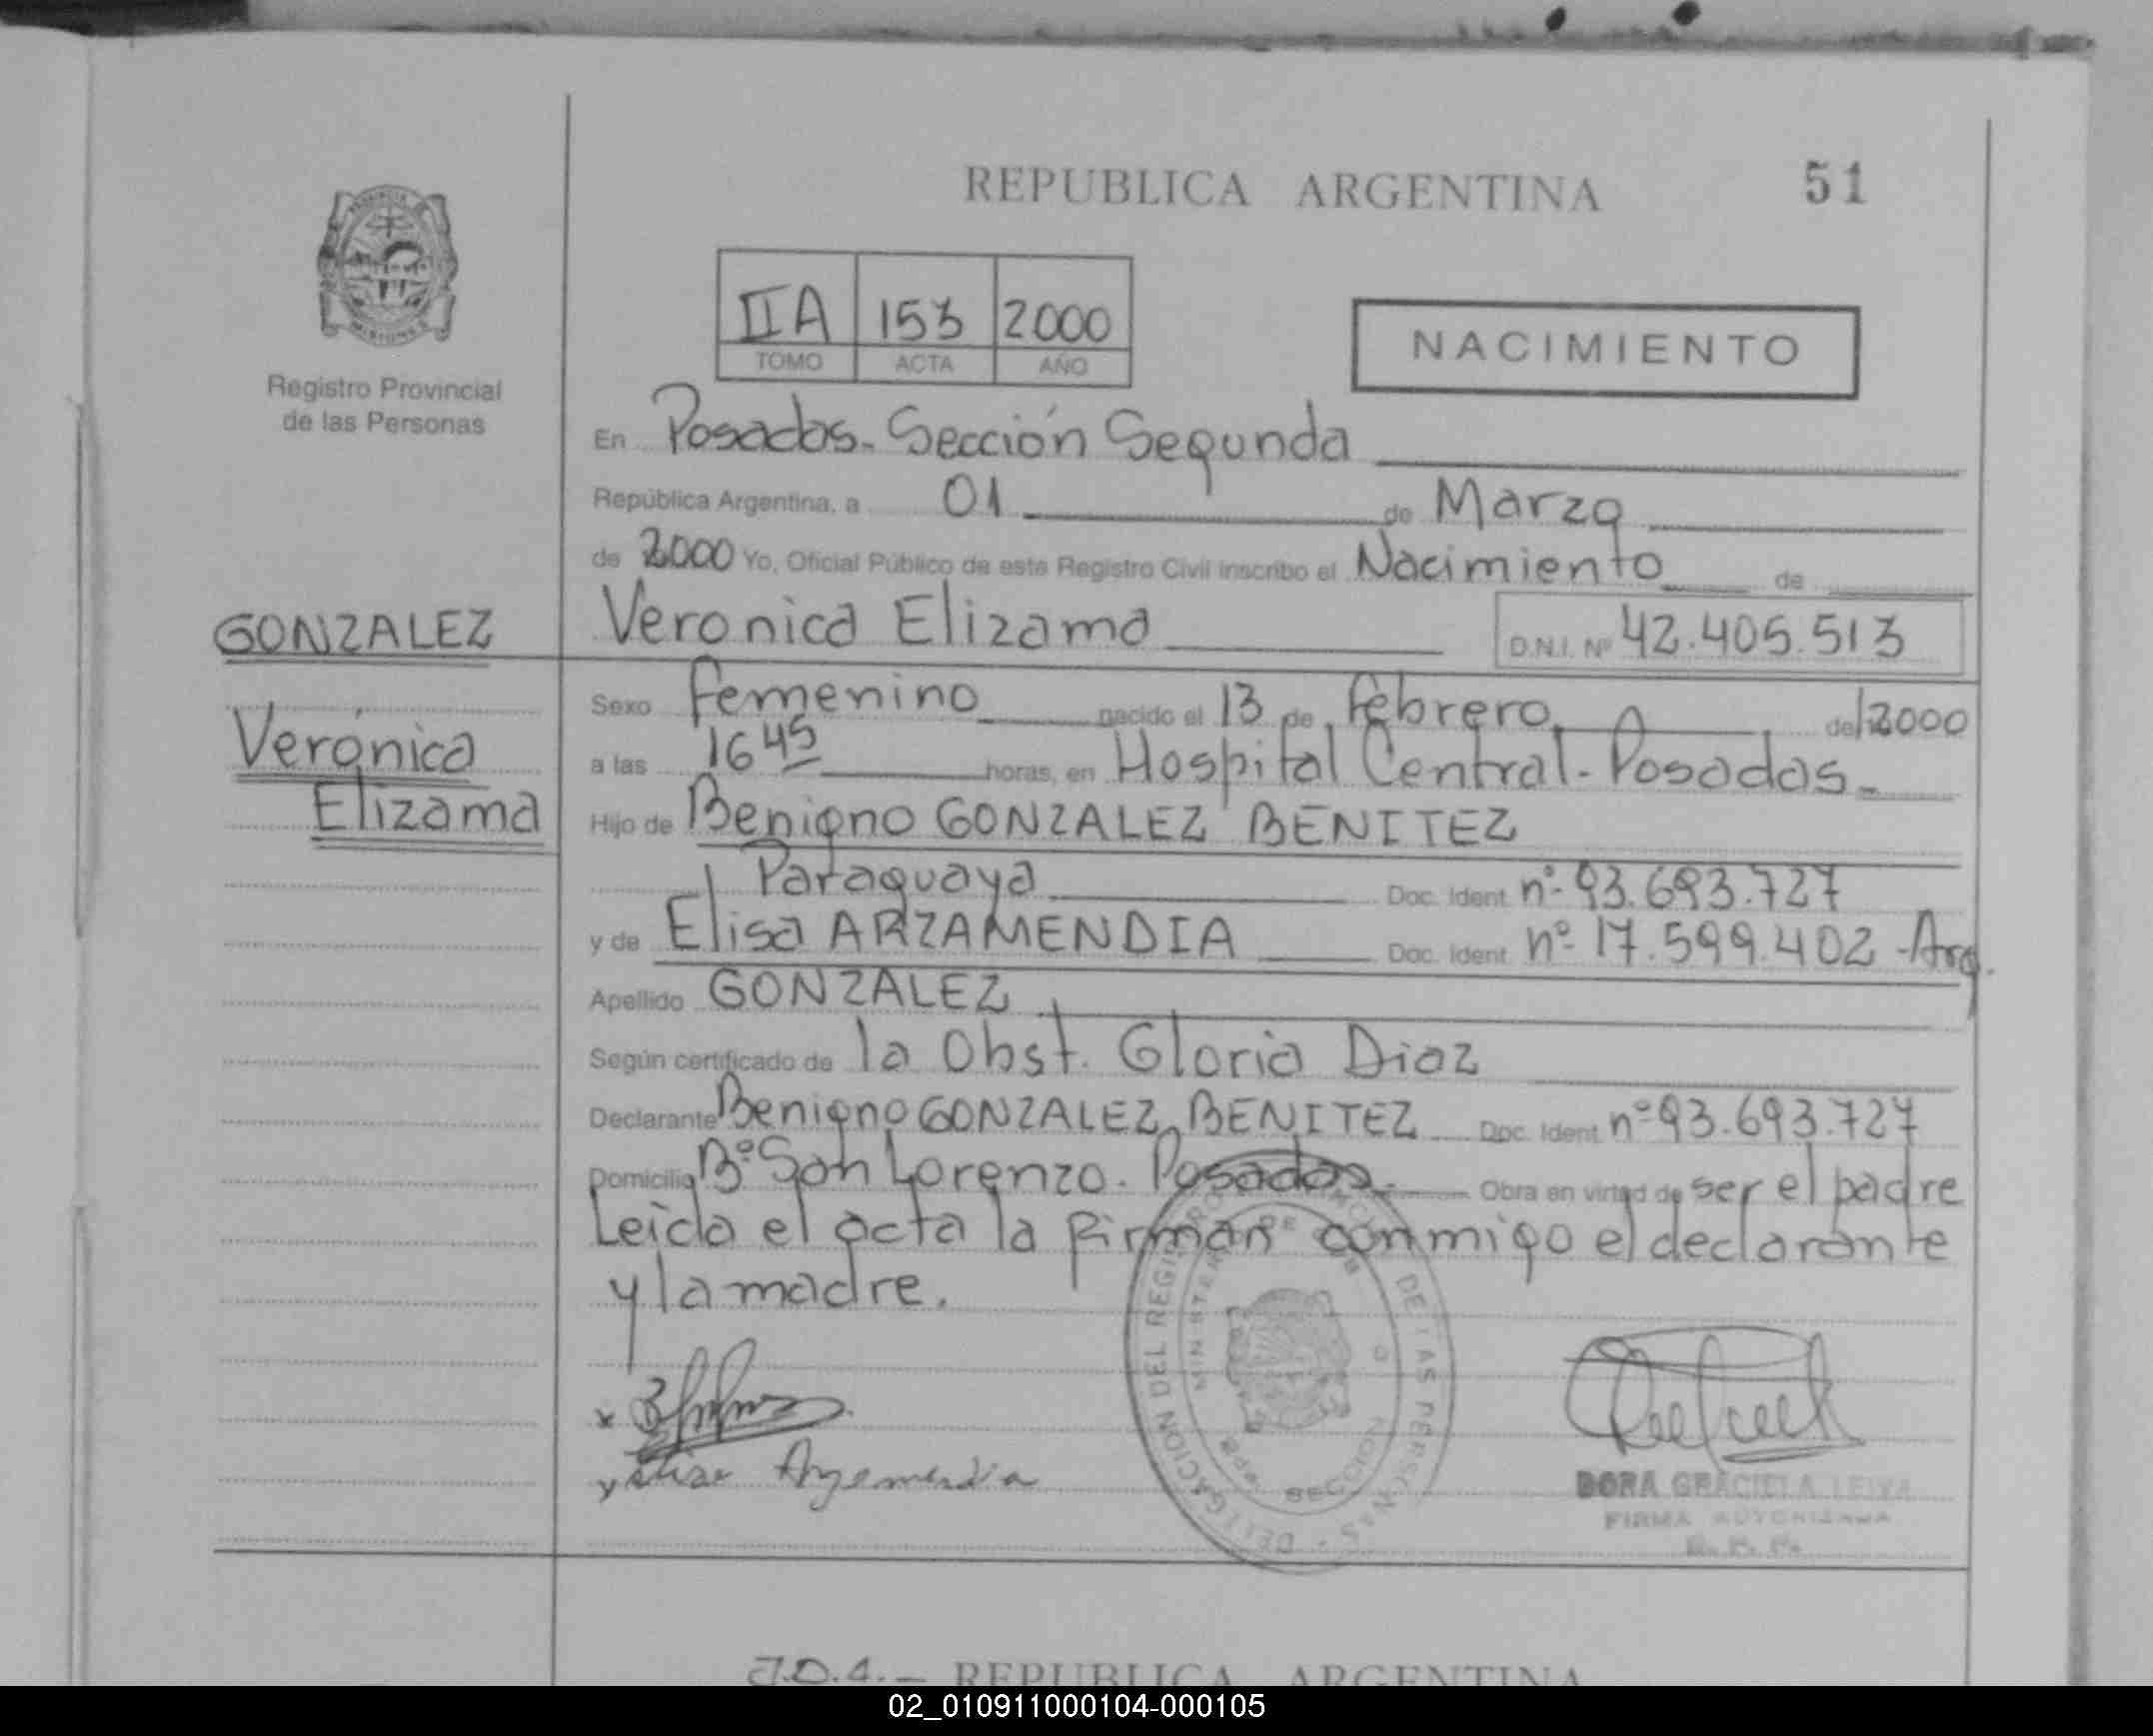 REPUBLICA ARGENTINA 51
Registro Provincial
de las Personas
IIA 153 2000
TOMO ACTA AÑO
NACIMIENTO
En Posadas. Sección Segunda
República Argentina, a 01 de Marzo
de 2000 Yo, Oficial Público de este Registro Civil inscribo el Nacimiento de
GONZALEZ
Verónica
Elizama
Veronica Elizama D.N.I. Nº 42.405.513
Sexo Femenino nacido el 13 de febrero de 2000
a las 16 45 horas, en Hospital Central - Posadas.
Hijo de Benigno GONZALEZ BENITEZ
Paraguaya Doc. Ident. nº 93.693.727
y de Elisa ARZAMENDIA Doc. Ident. nº 17.599.402 - Arg.
Apellido GONZALEZ
Según certificado de la Obst. Gloria Diaz
Declarante Benigno GONZALEZ BENITEZ Doc. Ident. nº 93.693.727
Domicilio Bº San Lorenzo. Posadas. Obra en virtud de ser el padre
Leida el acta la firman conmigo el declarante
y la madre.
DELEGACION DEL REGISTRO PROVINCIAL DE LAS PERSONAS
SECCION
Arzemendia
DORA GRACIELA LEIVA
FIRMA AUTORIZADA
R. P. P.
REPUBLICA ARGENTINA
02_010911000104-000105